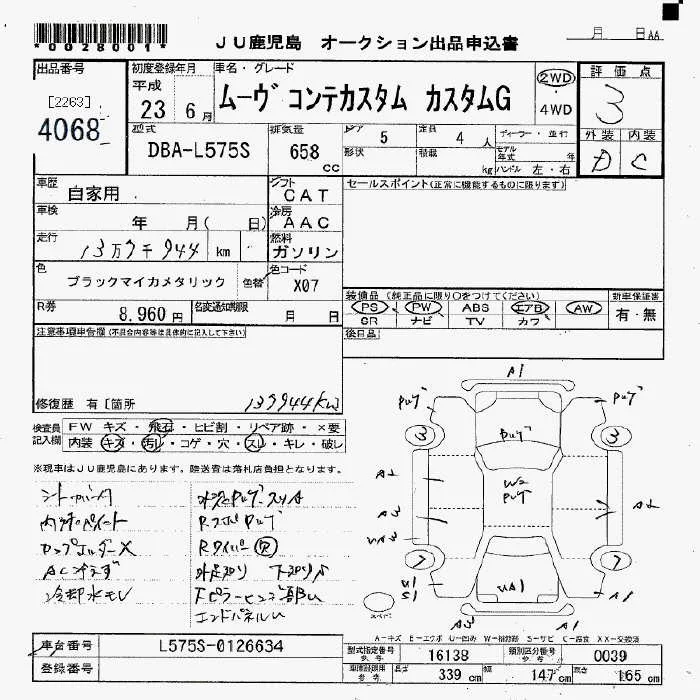 *0028001*
JU鹿児島 オークション出品申込書
月 日 AA
出品番号
[2263]
4068
初度登録年月
平成
23 6月
車名・グレード
ムーヴ コンテカスタム カスタムG
2WD
・
4WD
評価点
3
外装 内装
D C
型式
DBA-L575S
排気量
658 cc
ドア 5
形状
定員 4 人
積載 kg
ディーラー・並行
モデル年式 年
ハンドル 左・右
車歴 自家用
シフト CAT
セールスポイント(正常に機能するものに限ります)
車検 年 月( 日)
冷房 AAC
走行 13万7千944 km
燃料 ガソリン
色 ブラックマイカメタリック 色替
色コード X07
装備品(純正品に限り○をつけてください)
新車保証書
PS PW ABS エアB AW
SR ナビ TV カワ
有・無
R券 8,960 円
名変通知期限 月 日
後日品
注意事項申告欄(不具合内容等は具体的に記入して下さい)
修復歴 有[箇所
137944km
検査員記入欄
FW キズ・飛石・ヒビ割・リペア跡・×要
内装 キズ・汚レ・コゲ・穴・スレ・キレ・破レ
※現車はJU鹿児島にあります。陸送費は落札店負担となります。
内外ペイント
カップホルダーX
AC冷えず
冷却水モレ
Rワイパー欠
エンドパネルU
A1
3 3
A2
W2
A3
A2
7 7
U1
S1
A1
スペアー
A-キズ E-エクボ U-凹み W-補修跡 S-サビ C-腐食 XX-交換済
車台番号 L575S-0126634
登録番号
型式指定番号 参考 16138
類別区分番号 参考 0039
車体諸限用 参考 長さ 339 cm 幅 147 cm 高さ 165 cm